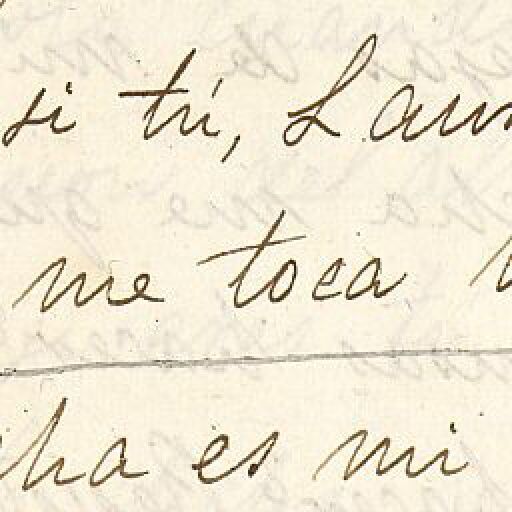 si tú, Laur
me toca
cha es mi